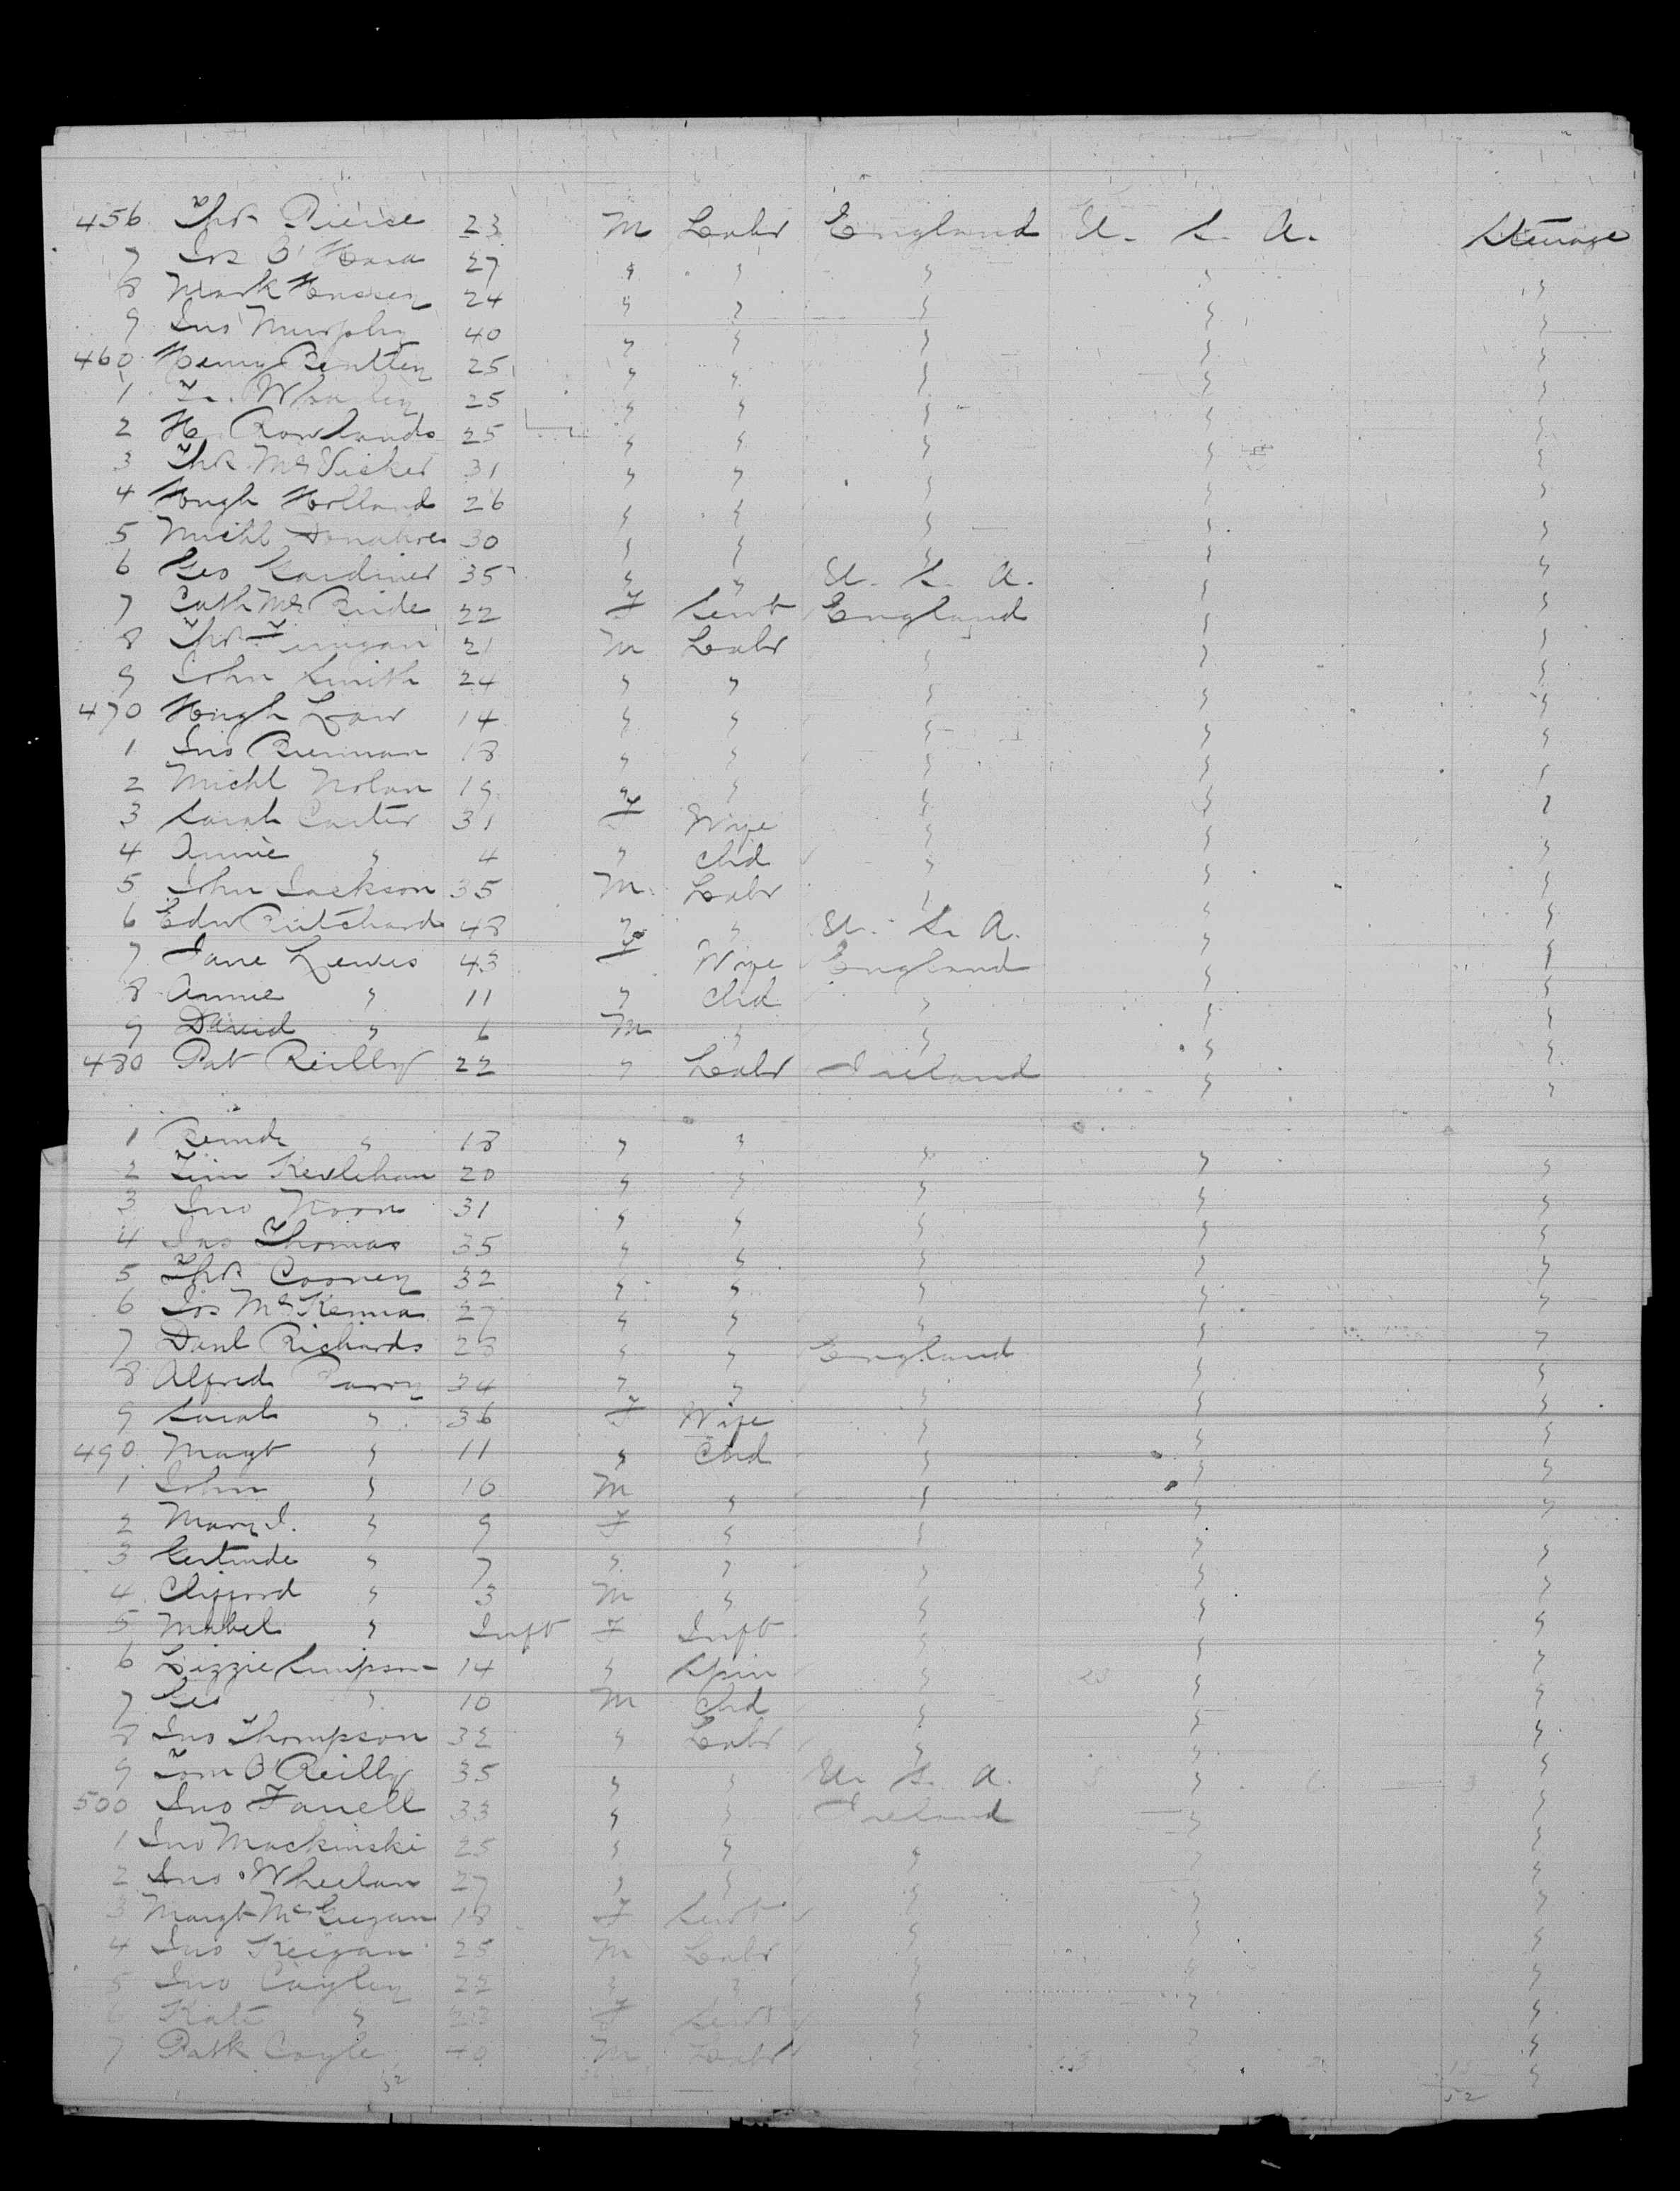 456 Thos Pierse 23 M Labr England U. S. A. Steerage
7 Jos O'Hara 27 " " " " "
8 Mark Hussey 24 " " " " "
9 Jno Murphy 40 " " " " "
460 Henry Bentley 25 " " " " "
1 Whorley 25 " " " " "
2 H. Rowlands 25 " " " " "
3 Thos McVicker 31 " " " " "
4 Hugh Holland 26 " " " " "
5 Michl Donahoe 30 " " " " "
6 Geo Gardiner 35 " " U. S. A. " "
7 Cath McBride 22 F Servt England " "
8 Thos Finigan 21 M Labr " " "
9 John Smith 24 " " " " "
470 Hugh Law 14 " " " " "
1 Jno Brennan 18 " " " " "
2 Michl Nolan 19 " " " " "
3 Sarah Carter 31 F Wife " " "
4 Annie " 4 " Chd " " "
5 John Jackson 35 M Labr " " "
6 Edw Pritchard 48 " " U. S. A. " "
7 Jane Lewis 43 F Wife England " "
8 Annie " 11 " Chd " " "
9 David " 6 M " " " "
480 Pat Reilly 22 " Labr Ireland " "
1 Bernd " 18 " " " " "
2 Tim Kerlehan 20 " " " " "
3 Jno Noon 31 " " " " "
4 Jas Thomas 35 " " " " "
5 Thos Cooney 32 " " " " "
6 Jos McKenna 27 " " " " "
7 Danl Richards 28 " " England " "
8 Alfred Parry 34 " " " " "
9 Sarah " 36 F Wife " " "
490 Magt " 11 " Chd " " "
1 John " 10 M " " " "
2 Mary J. " 9 F " " " "
3 Gertrude " 7 " " " " "
4 Clifford " 3 M " " " "
5 Mabel " Inft F Inft " " "
6 Lizzie Simpson 14 " Spin " " "
7 Geo " 10 M Chd " " "
8 Jno Thompson 32 " Labr " " "
9 Tom O'Reilly 35 " " U. S. A. " "
500 Jno Farrell 33 " " Ireland " "
1 Jno Mackinski 25 " " " " "
2 Jno Wheelan 27 " " " " "
3 Margt McGuigan 18 F Servt " " "
4 Jno Keegan 25 M Labr " " "
5 Jno Cayley 22 " " " " "
6 Kate " 23 F Servt " " "
7 Patk Coyle 40 M Labr " " "
52 52